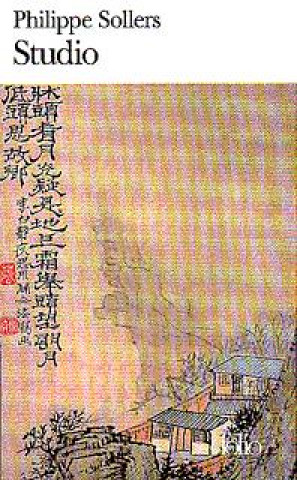 Philippe Sollers
Studio
牀頭看月光疑是地上霜舉頭望明月
低頭思故鄉
李白靜夜思
folio